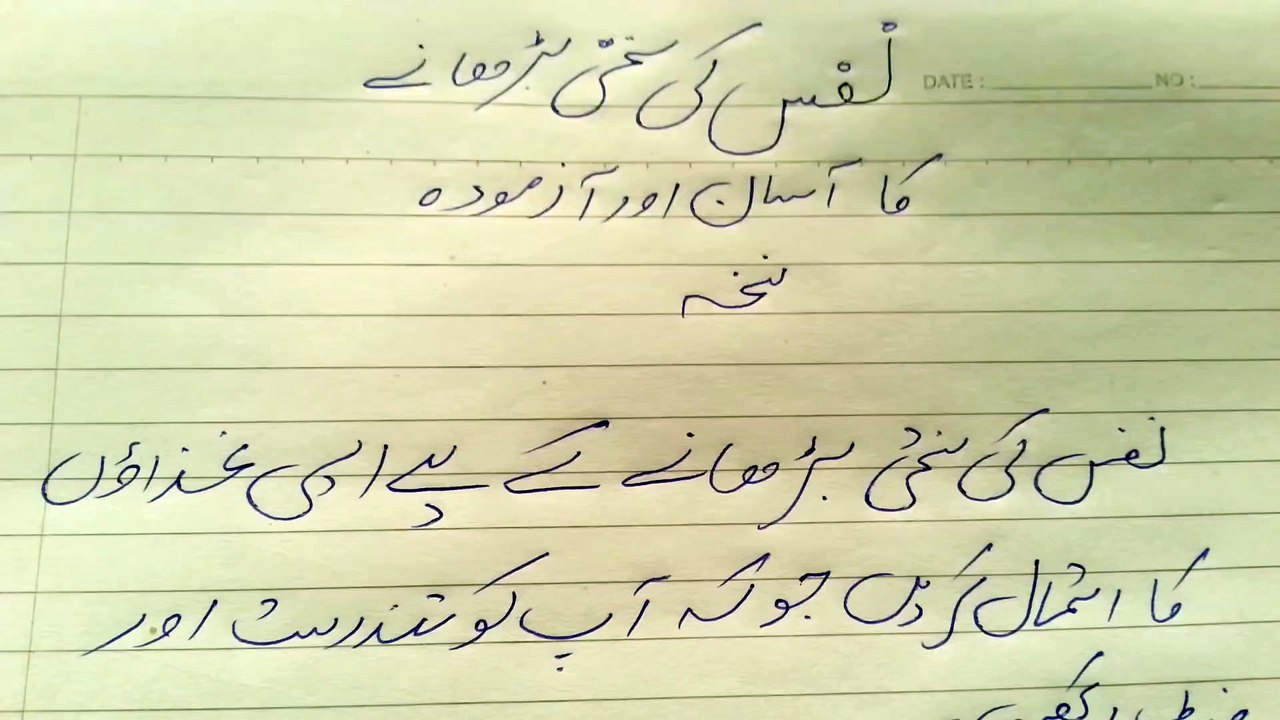 نفس کی سختی بڑھانے
DATE: NO:
کا آسان اور آزمودہ
نسخہ
نفس کی سختی بڑھانے کے لیے ایسی غذاؤں
کا استمال کریں جو کہ آپ کو تندرست اور
رکھیں